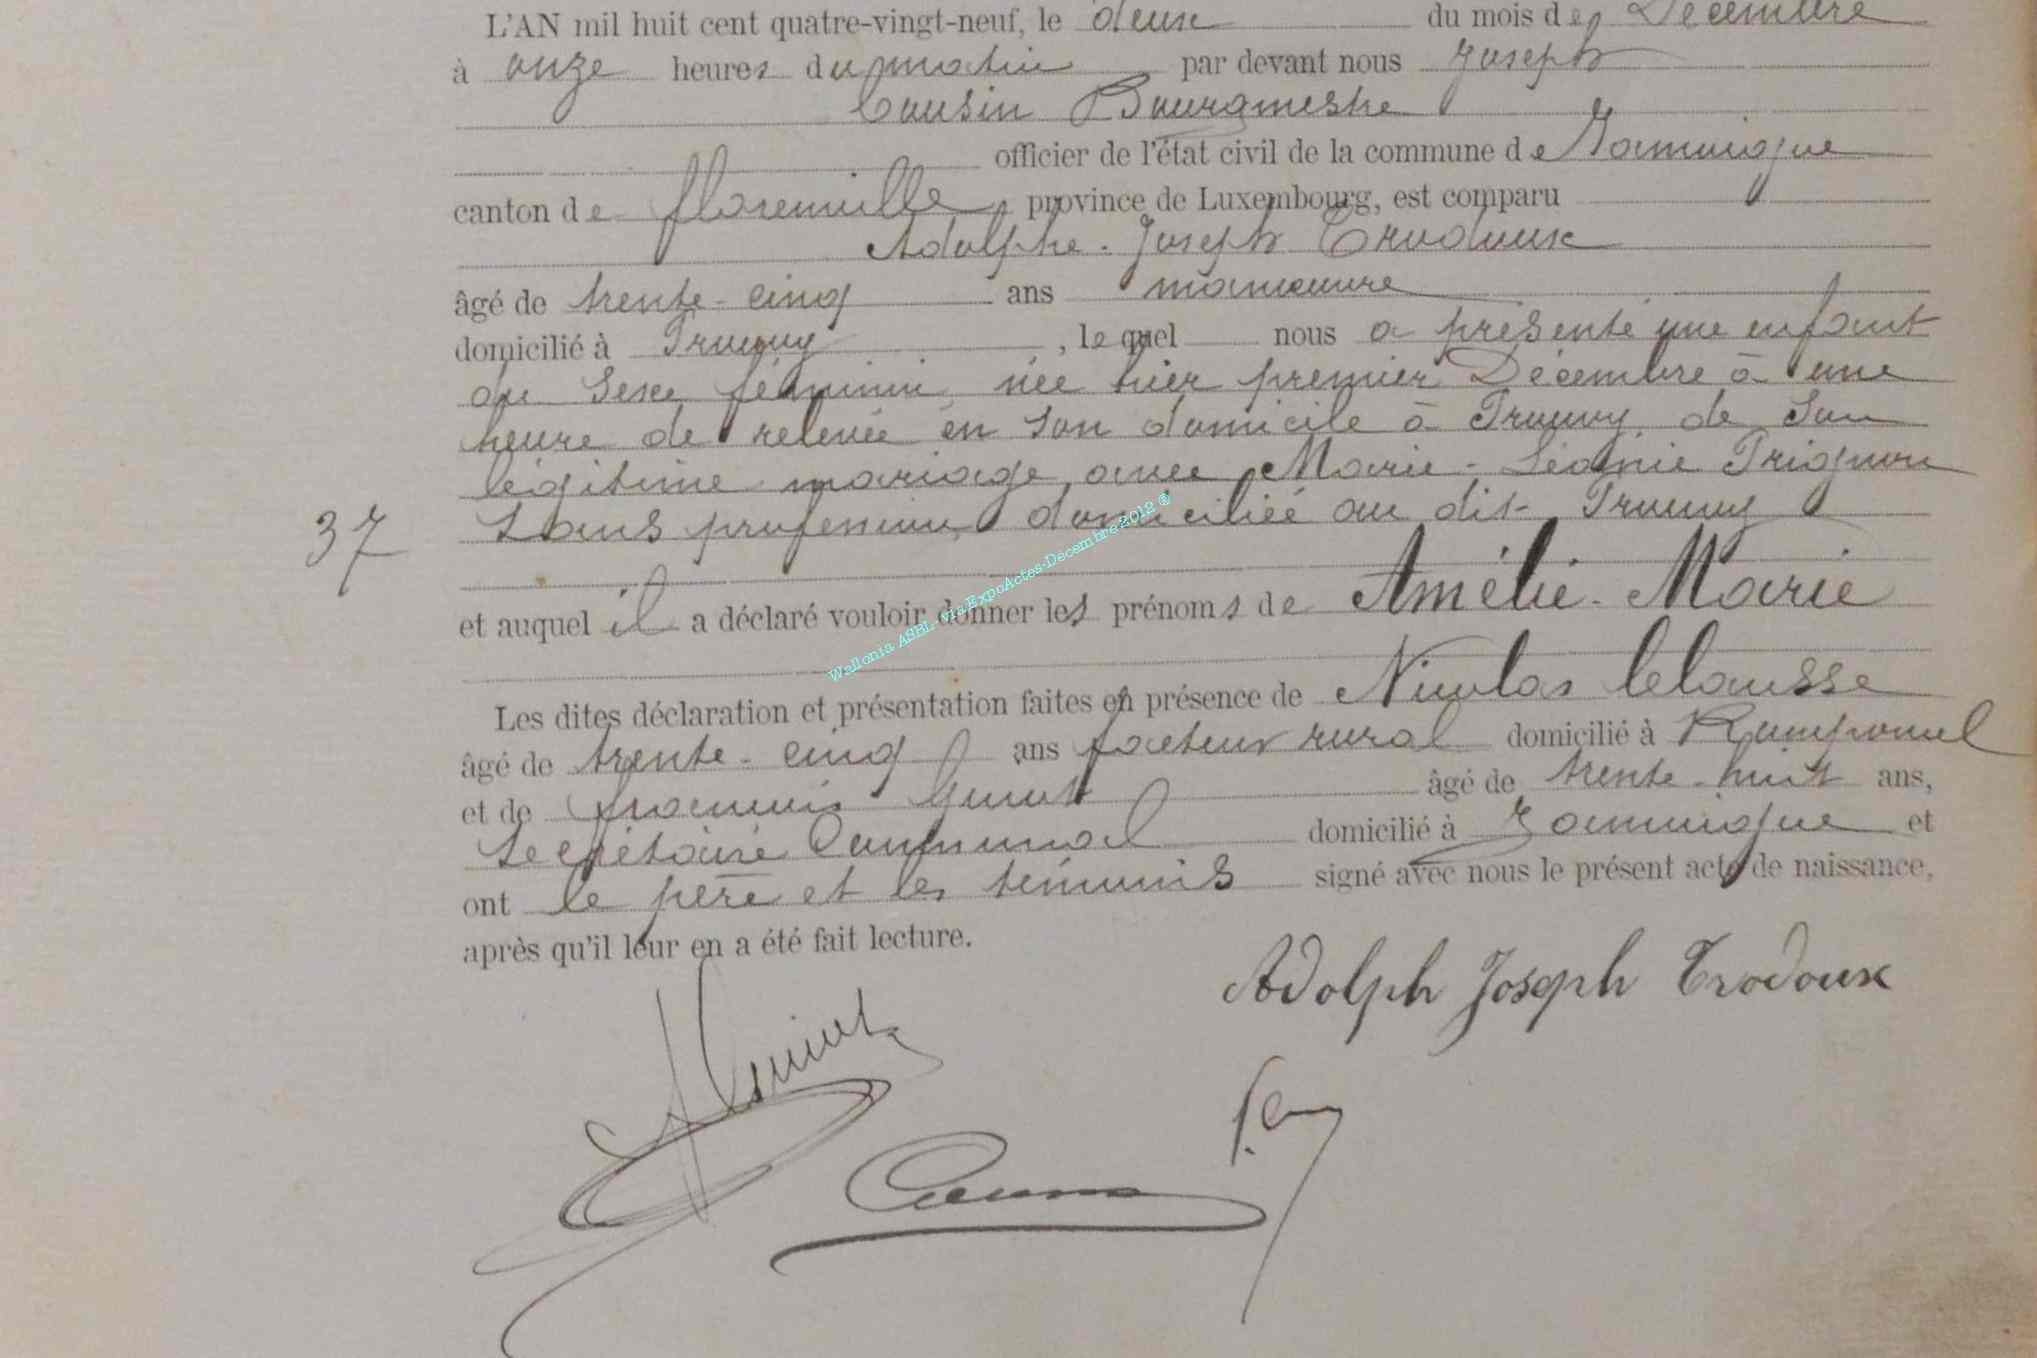 L'AN mil huit cent quatre-vingt-neuf, le deux du mois de Décembre
à onze heures du matin par devant nous Joseph
Cousin Bourgmestre
officier de l'état civil de la commune de Jamoigne
canton de florenville province de Luxembourg, est comparu
Adolphe-Joseph Trodoux
âgé de trente-cinq ans manoeuvre
domicilié à Prouvy, lequel nous a présenté une enfant
du Sexe féminin, née hier premier Décembre à une
heure de relevée en son domicile à Prouvy, de Son
légitime mariage avec Marie-Léonie Prignon
Sans profession, domiciliée au dit Prouvy
37
et auquel il a déclaré vouloir donner les prénoms de Amélie-Marie
Les dites déclaration et présentation faites en présence de Nicolas Clausse
âgé de trente-cinq ans facteur rural domicilié à Romponcel
et de françois âgé de trente-huit ans,
Secrétaire Communal domicilié à Jamoigne et
ont le père et les témoins signé avec nous le présent acte de naissance,
après qu'il leur en a été fait lecture.
Adolph Joseph Trodoux
Wallonia ASBL via ExpoActes-Décembre 2012 ®